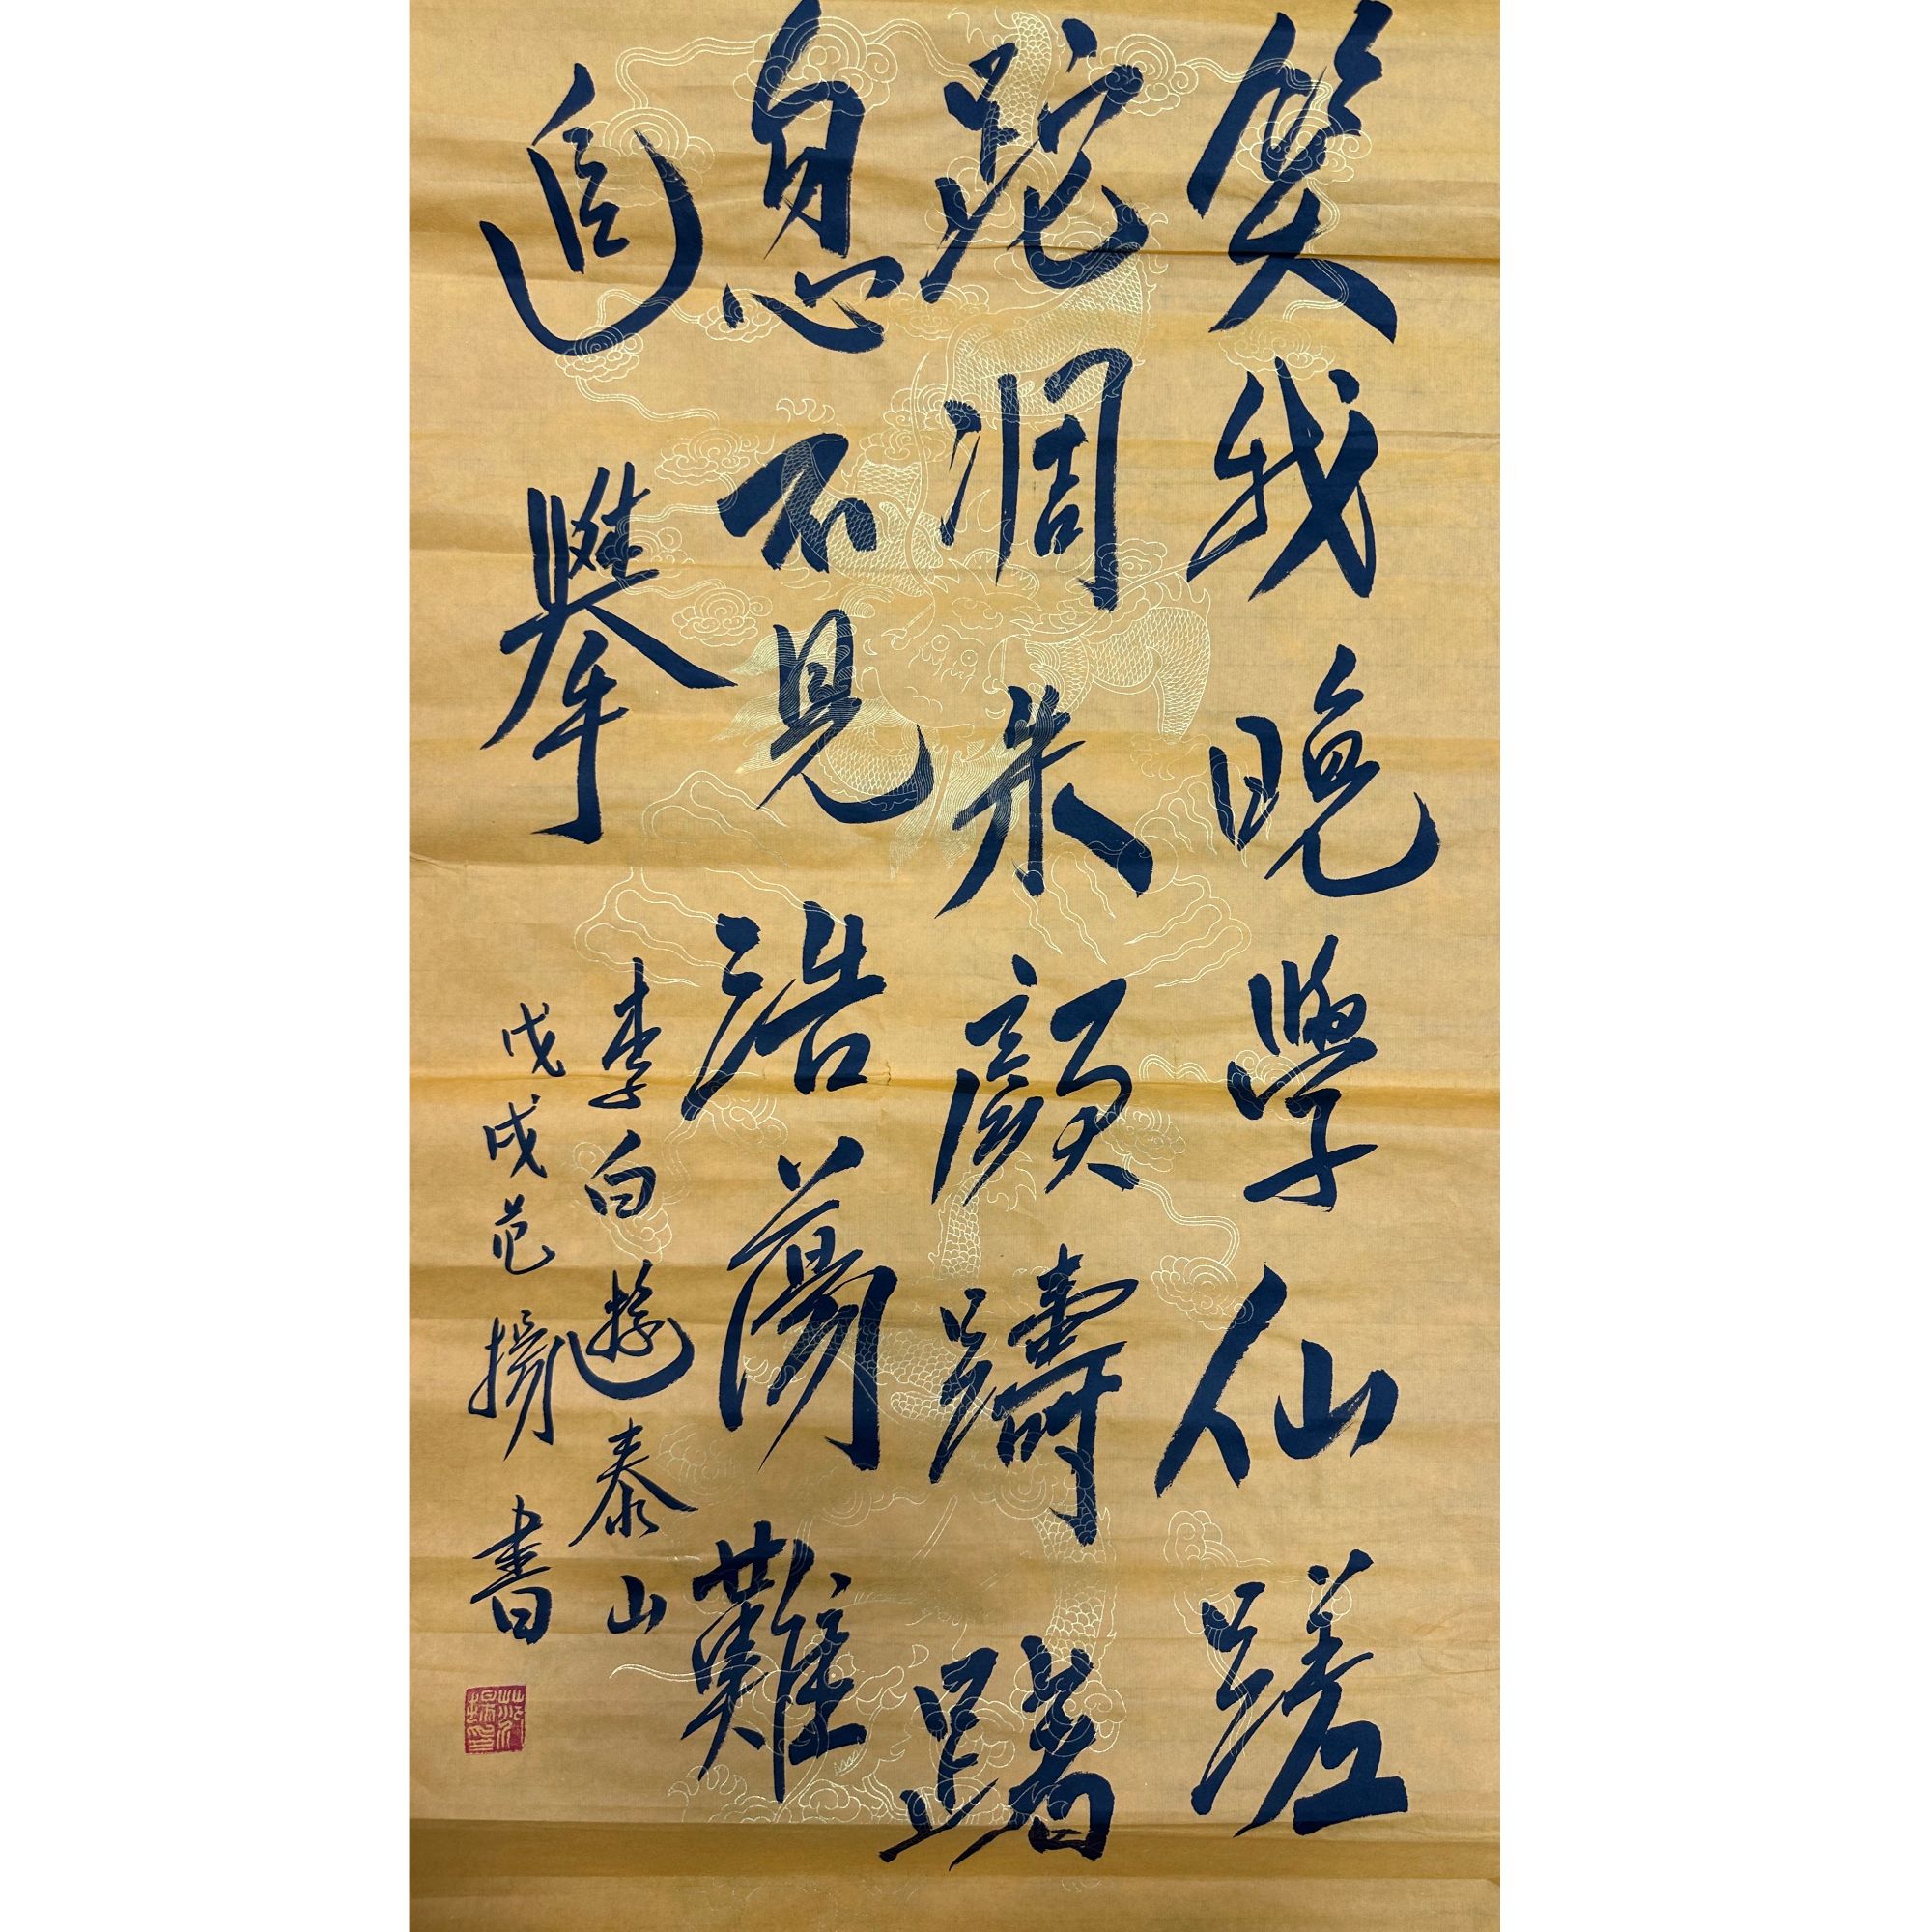 笑我晚學仙蹉
跎凋朱顏躊躇
息不見浩蕩難
追攀
李白遊泰山
戊戌范揚書